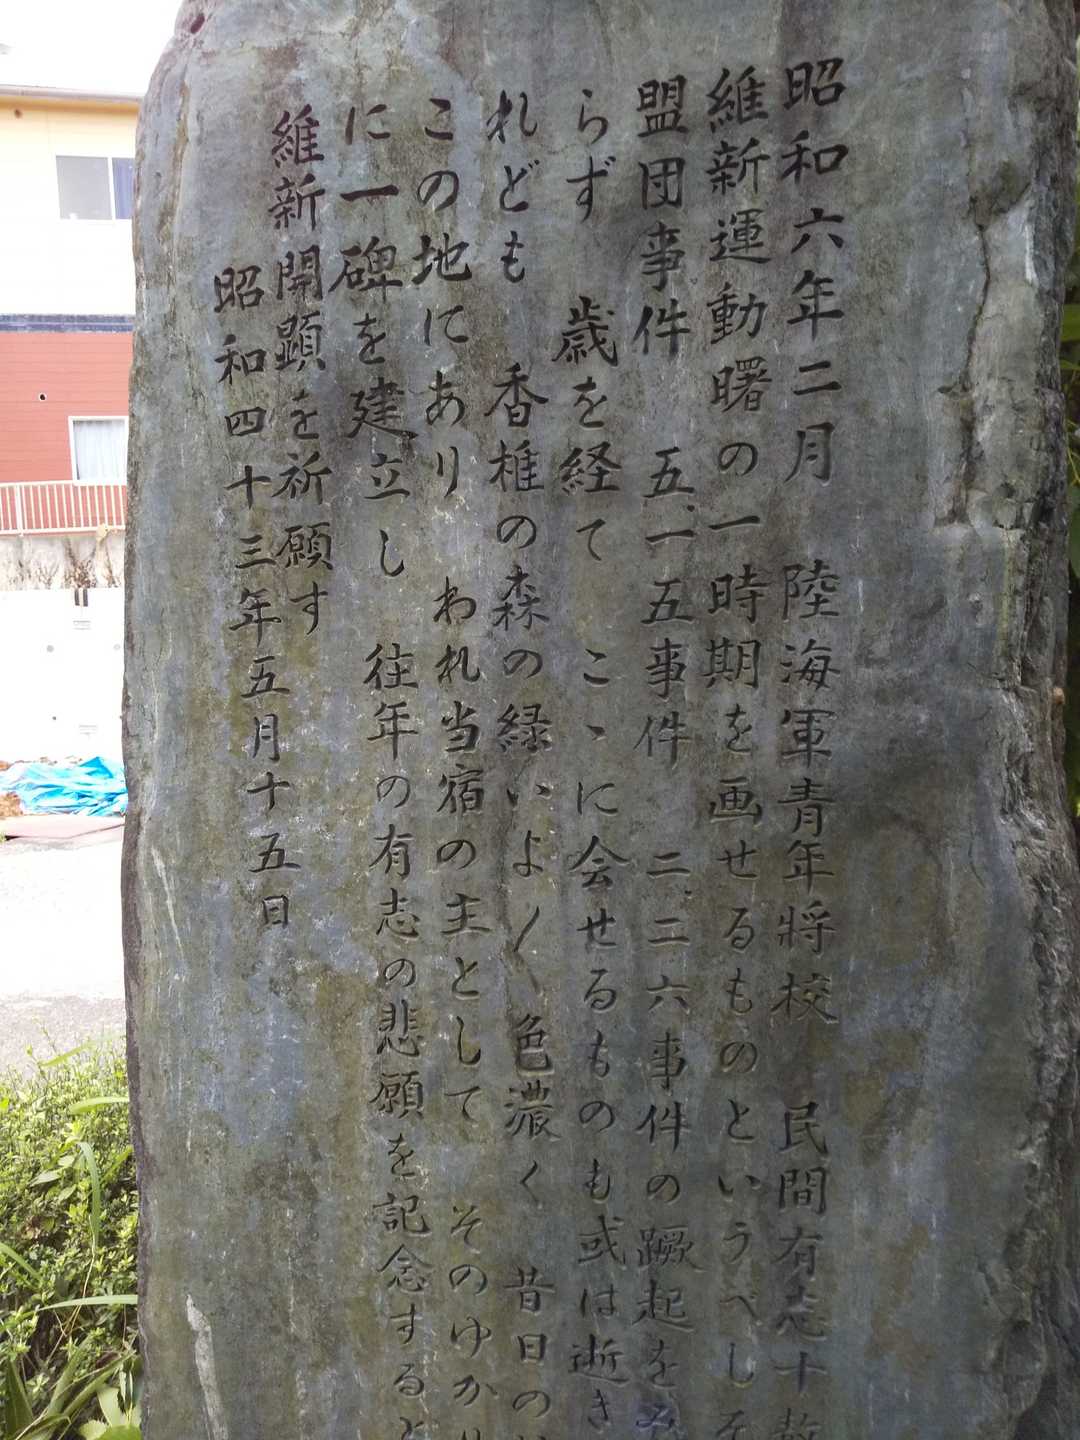 昭和六年二月　陸海軍青年将校　民間有志十数
維新運動曙の一時期を画せるものというべし　そ
盟団事件　五、一五事件　二、二六事件の蹶起をみ
らず　歳を経て　こゝに会せるものも或は逝き
れども　香椎の森の緑いよ〱色濃く　昔日の
この地にあり　われ当宿の主として　そのゆかり
に一碑を建立し　往年の有志の悲願を記念すると
維新開顕を祈願す
昭和四十三年五月十五日